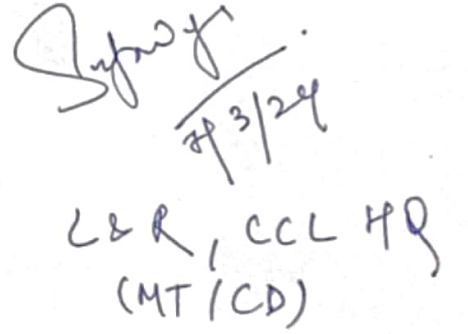 7/3/24
L&R, CCL HQ
(MT/CD)